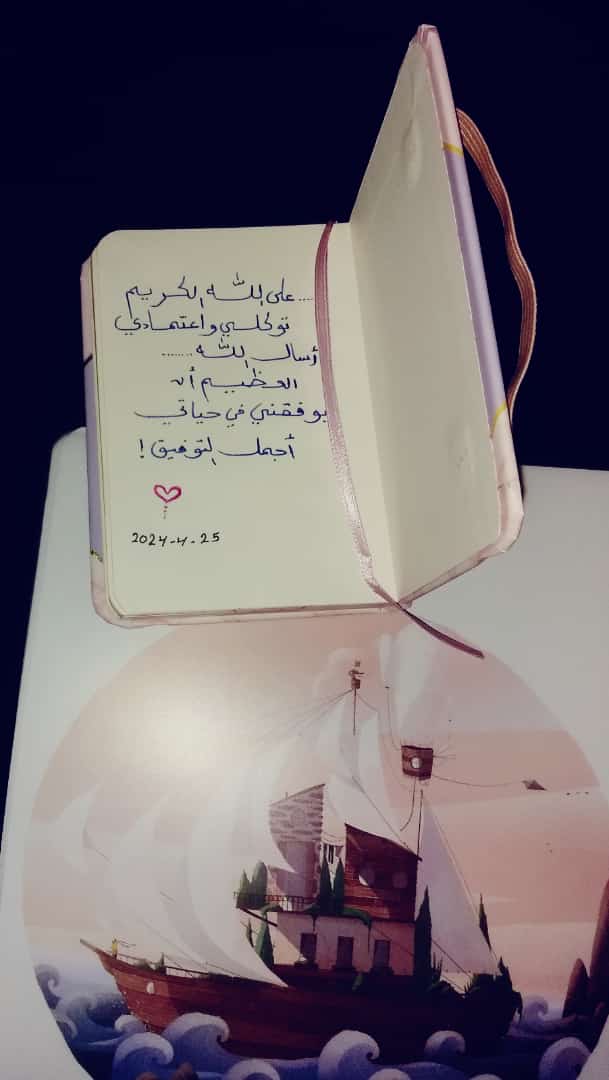 .... على الله الكريم
توكلي واعتمادي
أسال الله ........
العظيم أن
يوفقني في حياتي
أجمل التوفيق!
2024-4-25